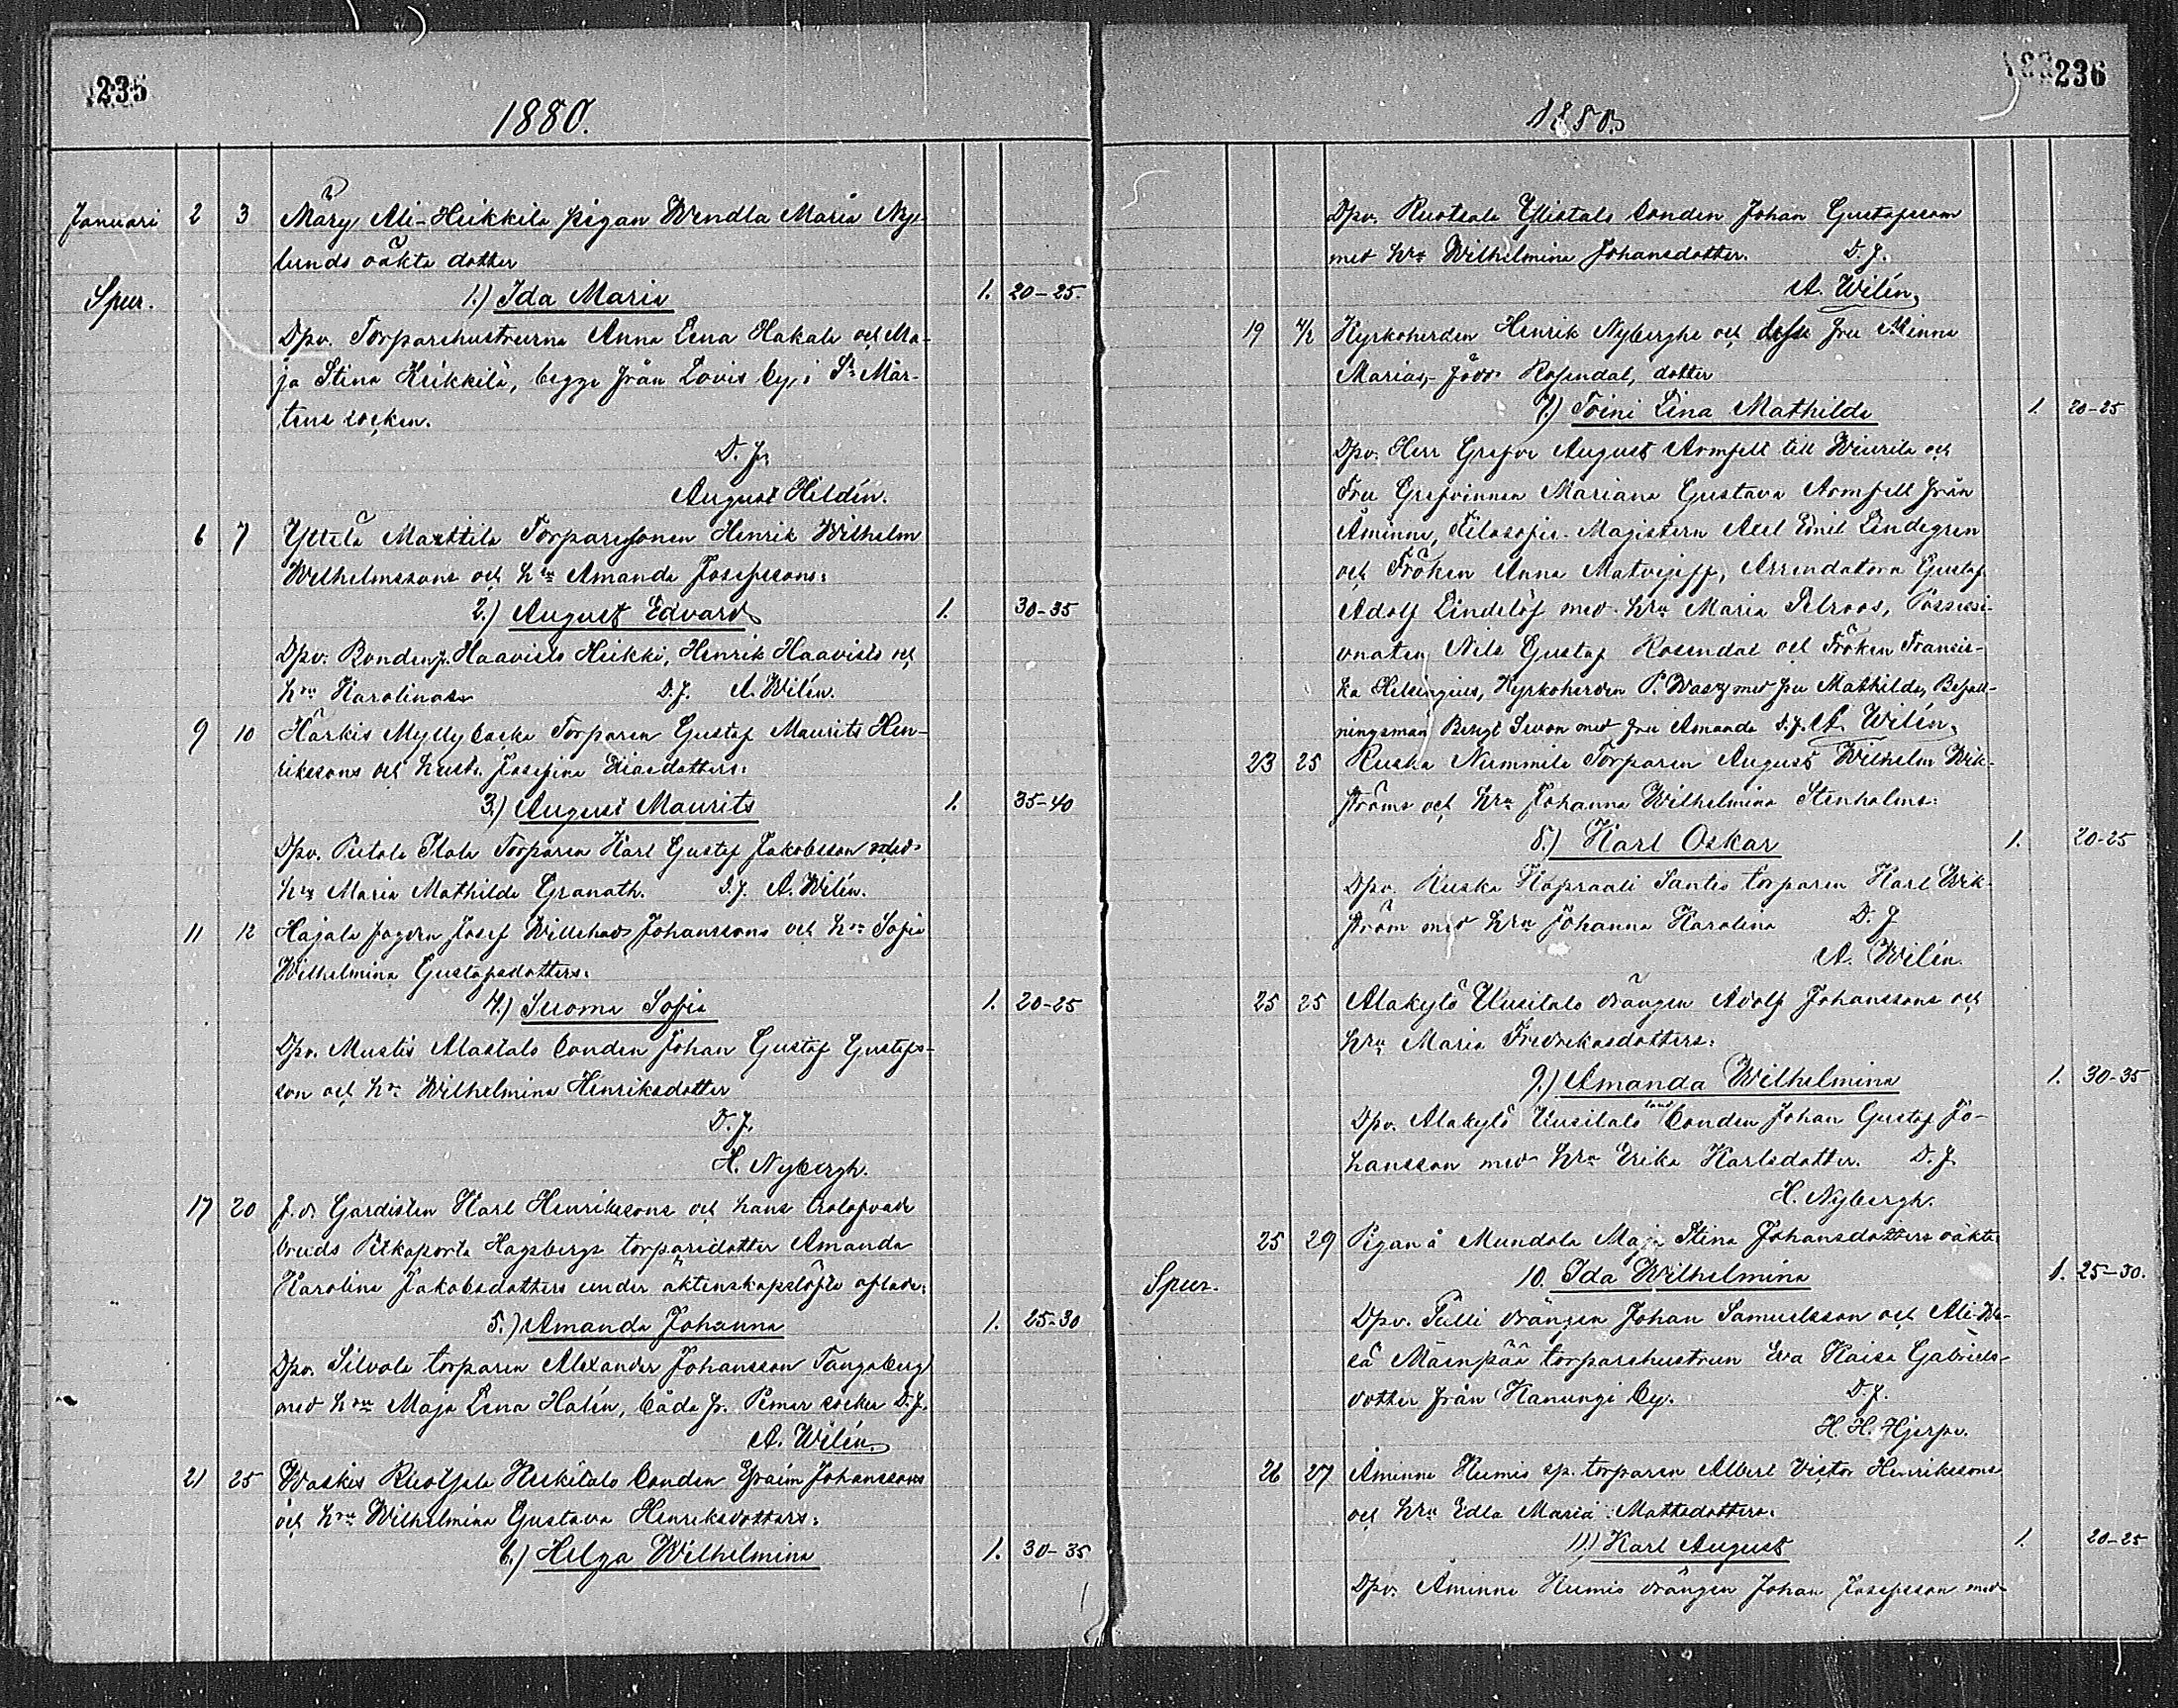 235
1880.
Januari 2 3 Märy Ali-Heikkilä pigan Wendla Maria Ny-
lunds oäkta dotter
Spur. 1.) Ida Maria 1. 20-25.
Dpv. Torparehustrurna Anna Lena Hakala och Ma-
ja Stina Heikkilä, begge från Lovis by, i St Mår-
tens socken.
D. f.
August Hildén.
6 7 Yttelä Marttila Torparesonen Henrik Wilhelm
Wilhelmssons och hru Amanda Josefssons:
2.) August Edvard 1. 30-35
Dpv. Bonden fr. Haavisto Heikki, Henrik Haavisto och
hru Karolina D.f. A. Wilén.
9 10 Härkis Myllybacka Torparen Gustaf Maurits Hen-
rikssons och hustr. Josefina Eliasdotters:
3.) August Maurits 1. 35-40
Dpv. Pietola Torparen Karl Gustaf Jakobsson med
hru Maria Mathilda Granath. D.f. A. Wilén.
11 12 Hajala fogden Josef Willehads Johanssons och hru Sofia
Wilhelmina Gustafsdotters:
4.) Suoma Sofia 1. 20-25
Dpv. Mustis Alastalo bonden Johan Gustaf Gustafs-
son och hru Wilhelmina Henriksdotter
D. f.
H. Nybergh.
17 20 f. d. Gardisten Karl Henrikssons och hans trolofvade
bruds Pitkäporta Hagsbergs torparedotter Amanda
Karolina Jakobsdotters under äktenskapslöfte aflade:
5.) Amanda Johanna 1. 25-30
Dpv. Silvola torparen Alexander Johansson Tangsberg
med hru Maja Lena Halén, båda fr. Pemar socken D.f.
A. Wilén.
21 25 Waskis Ruotsala Heikitalo bonden Efraim Johanssons
och hru Wilhelmina Gustava Henriksdotters:
6.) Helga Wilhelmina 1. 30-35
236
1880.
Dpv. Ruotsala Ylistalo bonden Johan Gustafsson
med hru Wilhelmina Johansdotter. D. f.
A. Wilén.
19 4/2 Kyrkoherden Henrik Nyberghs och dess fru Minna
Marias, född Rosendal, dotter
7.) Toini Lina Mathilda 1. 20-25
Dpv. Herr Grefve August Armfelt till Wiurila och
Fru Grefvinnan Mariana Gustava Armfelt från
Åminne, Filosofie-Magistern Axel Emil Lindegren
och Fröken Anna Matvejeff, Arrendatorn Gustaf
Adolf Lindelöf med hru Maria Pelroos, Possessi-
onaten Nils Gustaf Rosendal och Fröken Francis-
ka Helsingius, Kyrkoherden P. Wasz med fru Mathilda, Befall-
ningsman Bengt Sevon med fru Amanda D.f. A. Wilén.
23 25 Ruska Nummila Torparen August Wilhelm Wik-
ströms och hru Johanna Wilhelmina Stenholms:
8.) Karl Oskar 1. 20-25
Dpv. Ruska Kapraali Santio torparen Karl Wik-
ström med hru Johanna Karolina D. f
A. Wilén.
25 25 Alakylä Uusitalo drängen Adolf Johanssons och
hru Maria Fredrikasdotters:
9.) Amanda Wilhelmina 1. 30-35
Dpv. Alakylä Uusitalo bonden Johan Gustaf Jo-
hansson med hru Erika Karlsdotter. D. f.
H. Nybergh.
25 29 Pigan å Mundola Maja Stina Johansdotters oäkta
Spur. 10. Ida Wilhelmina 1. 25-30.
Dpv. Tulli drängen Johan Samuelsson och Ali-
Mäenpää torparehustrun Eva Kaisa Gabriels-
dotter från Kanungi by. D. f.
H. H. Hjerpe.
26 27 Åminne Kumis sp. torparen Albert Victor Henrikssons
och hru Edla Maria Mattsdotters:
11.) Karl August 1. 20-25
Dpv. Åminne Kumio drängen Johan Josefsson med